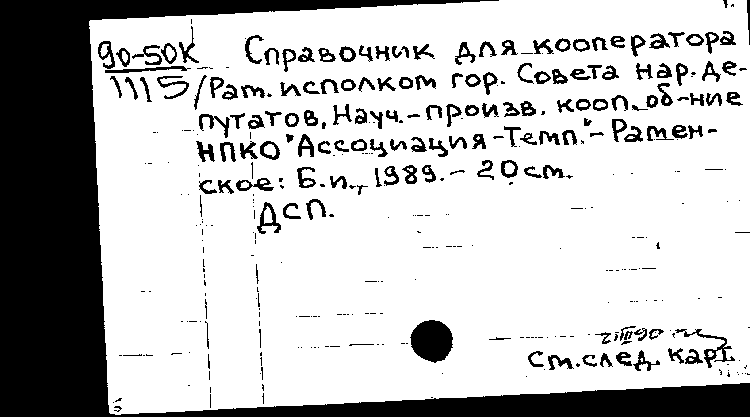 90-50К Справочник для кооператора
1115 /Рам. исполком гор. Совета нар. де-
путатов, Науч.-произв. кооп. об-ние
НПКО "Ассоциация-Темп."- Рамен-
ское: Б.и., 1989.- 20 см.
ДСП.
см. след. карт.